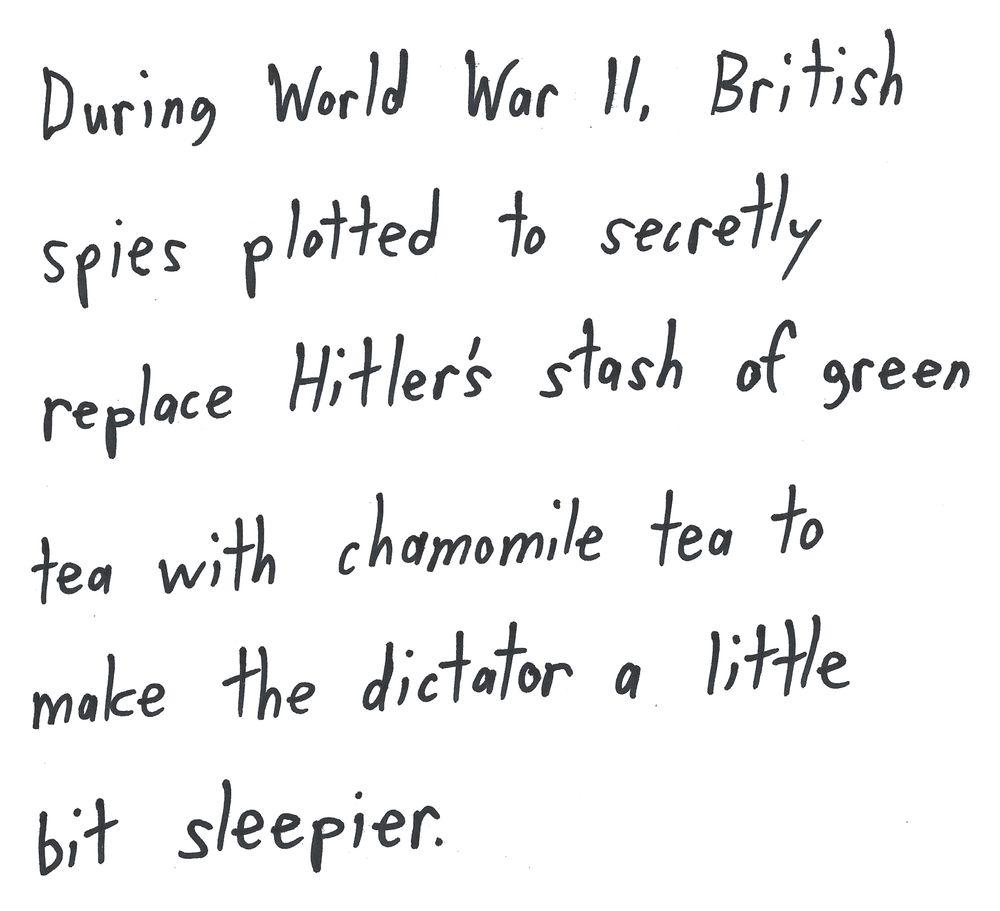 During World War II, British
spies plotted to secretly
replace Hitler's stash of green
tea with chamomile tea to
make the dictator a little
bit sleepier.